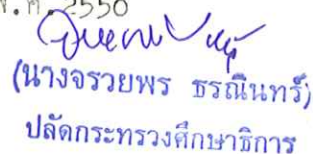 พ.ศ. 2550
(นางจรวยพร ธรณินทร์)
ปลัดกระทรวงศึกษาธิการ